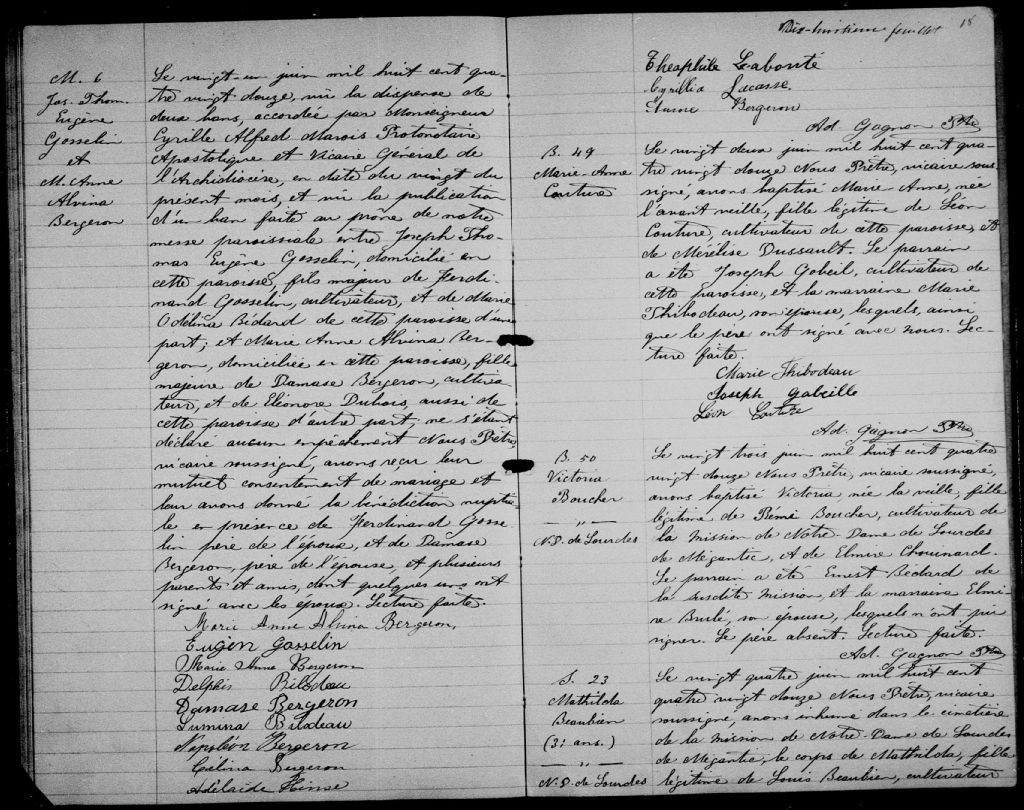 M. 6
Jos. Thom.
Eugène
Gosselin
et
M. Anne
Alvina
Bergeron
Le vingt-un juin mil huit cent qua-
tre vingt douze, vu la dispense de
deux bans, accordée par Monseigneur
Cyrille Alfred Marois Protonotaire
Apostolique et Vicaire Général de
l'Archidiocèse, en date du vingt du
présent mois, et vu la publication
d'un ban faite au prône de notre
messe paroissiale entre Joseph Tho-
mas Eugène Gosselin, domicilié en
cette paroisse, fils majeur de Ferdi-
nand Gosselin, cultivateur, et de Marie
Odélina Bédard de cette paroisse d'une
part; et Marie Anne Alvina Ber-
geron, domiciliée en cette paroisse, fille
majeure de Damase Bergeron, cultiva-
teur, et de Eléonore Dubois, aussi de
cette paroisse d'autre part; ne s'étant
déclaré aucun empêchement Nous Prêtre,
vicaire soussigné, avons reçu leur
mutuel consentement de mariage et
leur avons donné la bénédiction nuptia-
le en présence de Ferdinand Gosse
lin père de l'époux, et de Damase
Bergeron, père de l'épouse, et plusieurs
parents et amis, dont quelques uns ont
signé avec les époux. Lecture faite.
Marie Anne Alvina Bergeron,
Eugèn Gosselin
Marie Anne Bergeron
Delphis Bilodeau
Damase Bergeron
Lumina Bilodeau
Napoléon Bergeron
Célina Bergeron
Adélaide Hinse
Dix-huitième feuillet 18
Théophile Labonté
Cyrillia Lacasse
Bergeron
Ad. Gagnon Ptre
B. 49
Marie-Anne
Couture
Le vingt deux juin mil huit cent qua-
tre vingt douze Nous Prêtre, vicaire sous-
signé, avons baptisé Marie-Anne, née
l'avant veille, fille légitime de Léon
Couture, cultivateur de cette paroisse, et
de Mérélise Dussault. Le parrain
a été Joseph Gobeil, cultivateur de
cette paroisse, et la marraine Marie
Thibodeau, son épouse, lesquels, ainsi
que le père ont signé avec nous. Lec-
ture faite.
Marie Thibodeau
Joseph Gabeille
Léon Couture
Ad. Gagnon Ptre
B. 50
Victoria
Boucher
— " —
N.D. de Lourdes
Le vingt trois juin mil huit cent quatre
vingt douze Nous Prêtre, vicaire soussigné,
avons baptisé Victoria, née la veille, fille
légitime de Rémi Boucher, cultivateur de
la mission de Notre-Dame de Lourdes
de Mégantic, et de Elmire Chouinard.
Le parrain a été Ernest Bédard de
la susdite mission, et la marraine Elmi-
re Brulé, son épouse, lesquels n'ont pu
signer. Le père absent. Lecture faite.
Ad. Gagnon Ptre
S. 23
Mathilda
Beaubien
(31 ans.)
— " —
N.D. de Lourdes
Le vingt quatre juin mil huit cent
quatre vingt douze Nous Prêtre, vicaire
soussigné, avons inhumé dans le cimetière
de la mission de Notre-Dame de Lourdes
de Mégantic, le corps de Mathilda, fille
légitime de Louis Beaubien, cultivateur